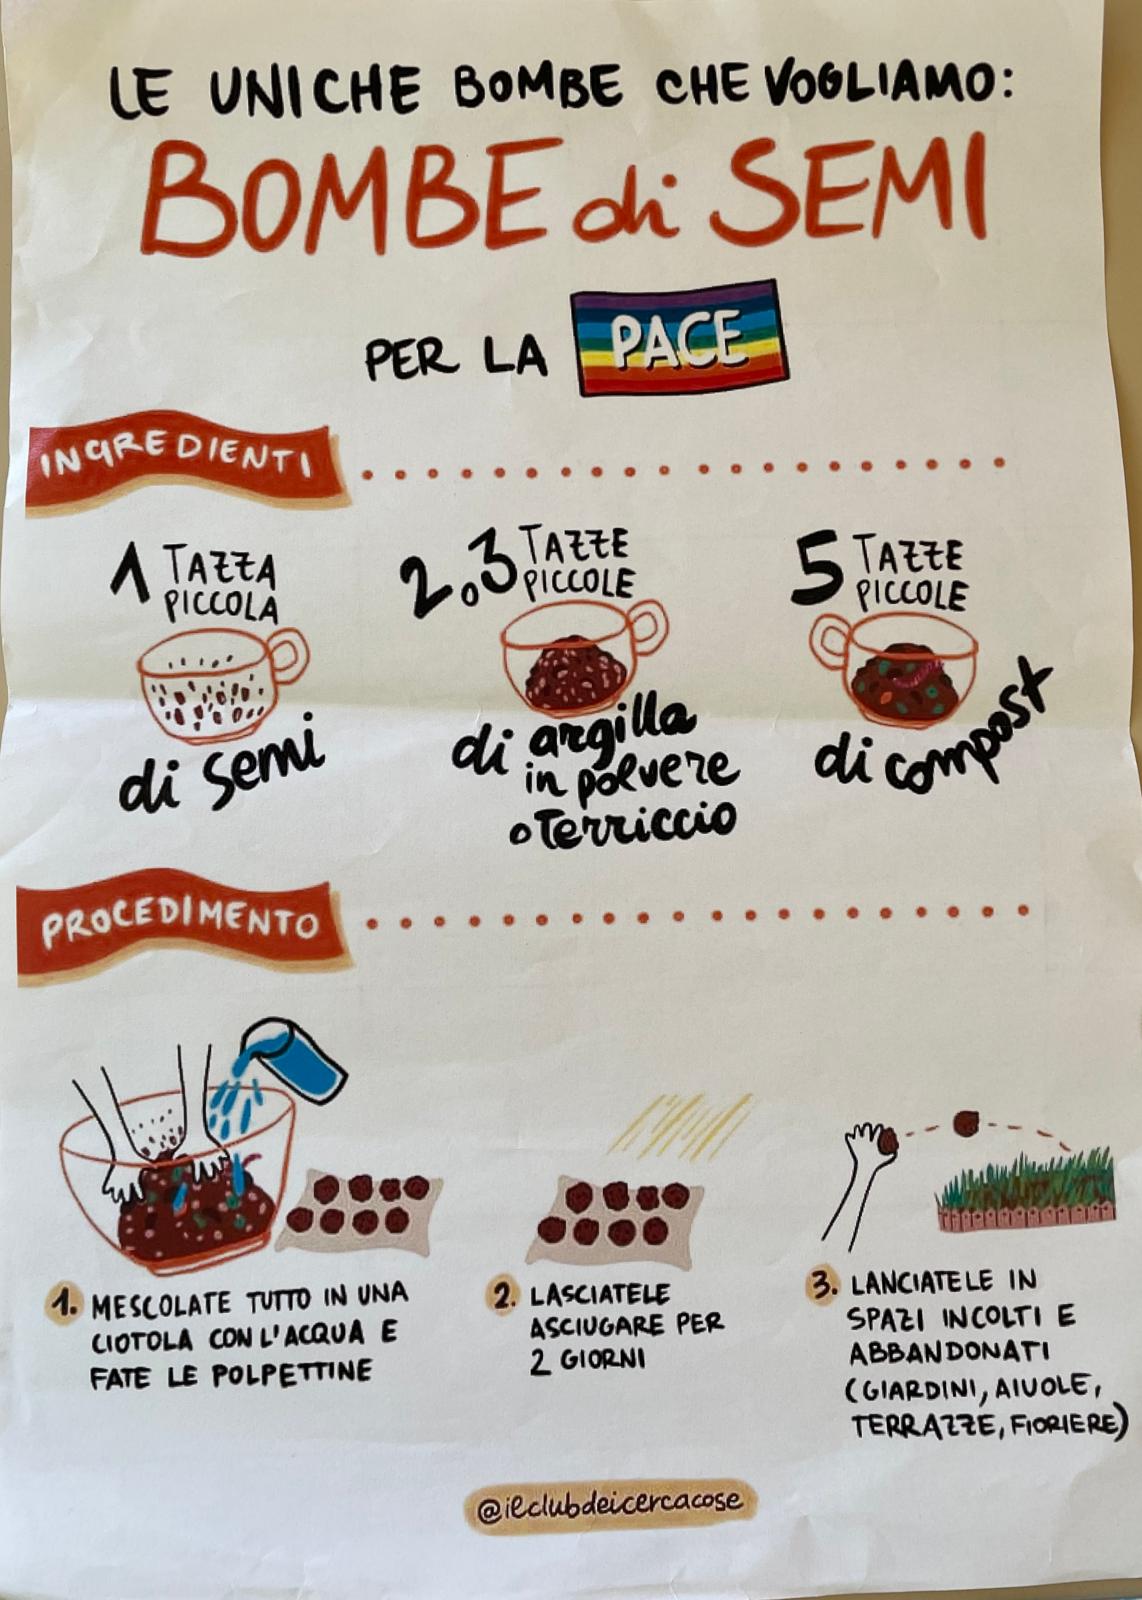 LE UNICHE BOMBE CHE VOGLIAMO:
BOMBE di SEMI
PER LA PACE
INGREDIENTI
1 TAZZA
PICCOLA
di semi
2 o 3 TAZZE
PICCOLE
di argilla
in polvere
o Terriccio
5 TAZZE
PICCOLE
di compost
PROCEDIMENTO
1. MESCOLATE TUTTO IN UNA
CIOTOLA CON L'ACQUA E
FATE LE POLPETTINE
2. LASCIATELE
ASCIUGARE PER
2 GIORNI
3. LANCIATELE IN
SPAZI INCOLTI E
ABBANDONATI
(GIARDINI, AIUOLE,
TERRAZZE, FIORIERE)
@ilclubdeicercacose